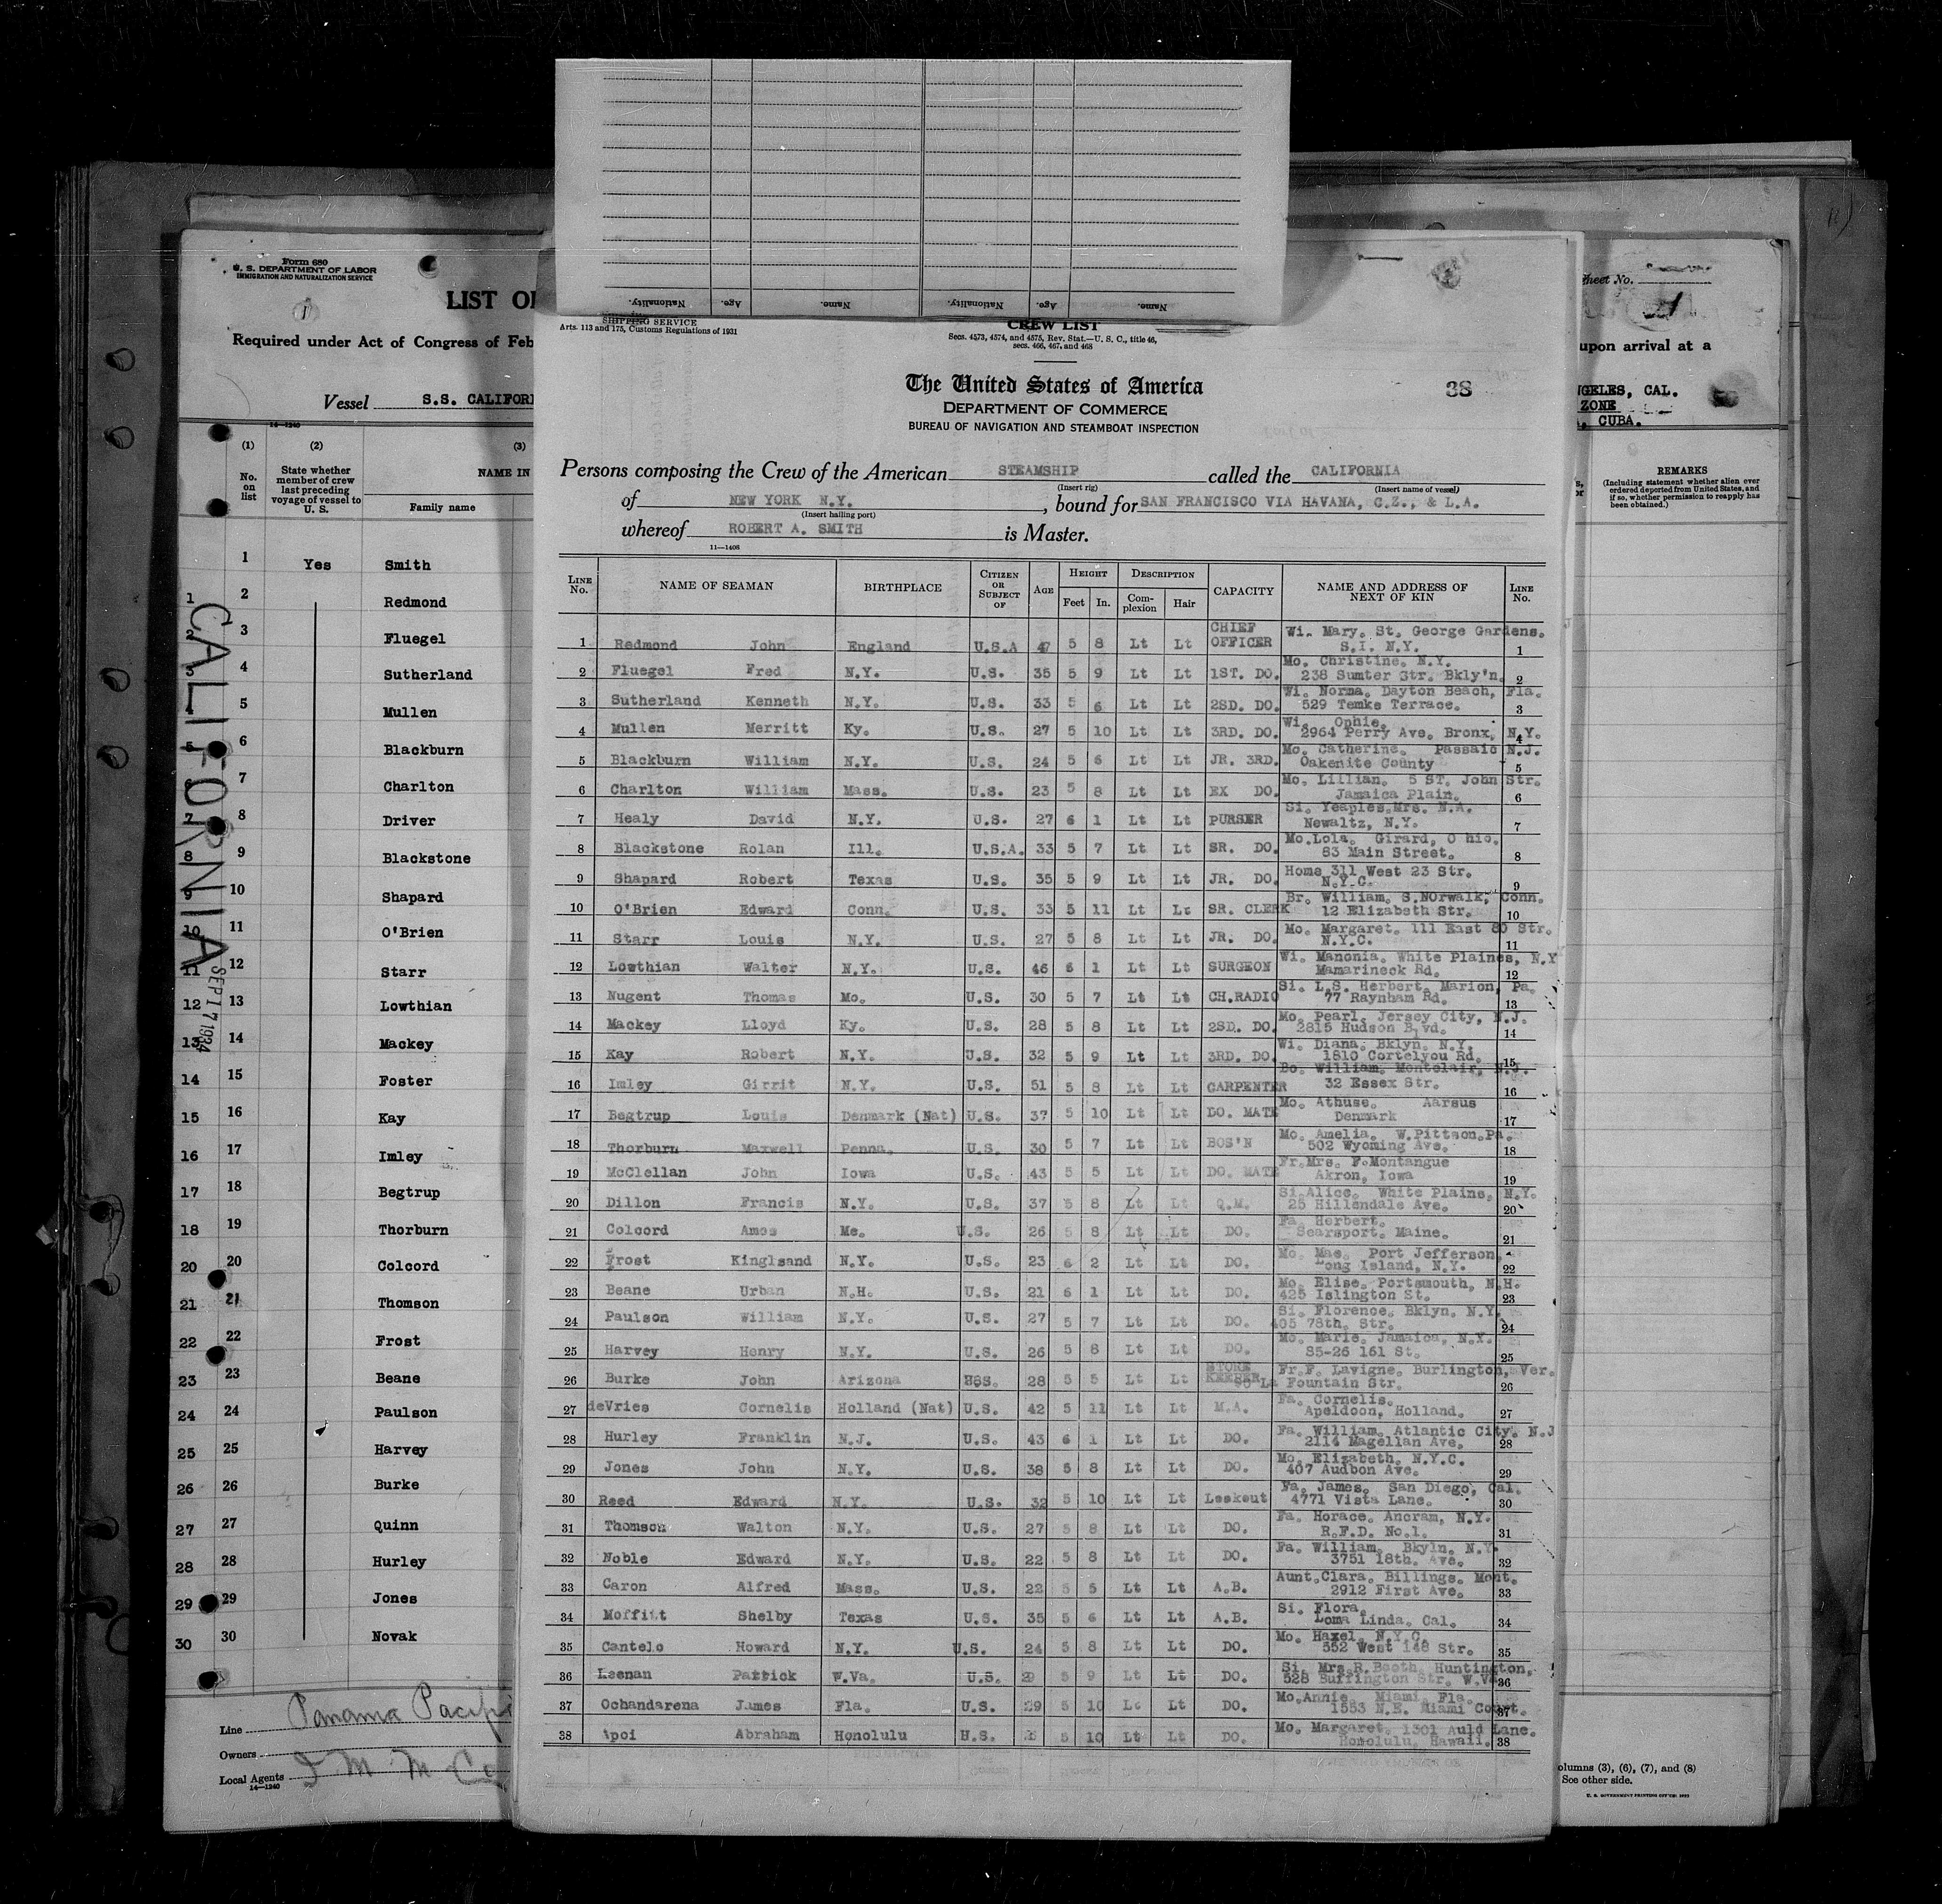 Nationality. Age. Name. Nationality. Age. Name.
Form 680
U. S. DEPARTMENT OF LABOR
IMMIGRATION AND NATURALIZATION SERVICE
1
LIST OF
Required under Act of Congress of Feb
Vessel S.S. CALIFORN
14—1240
(1) (2) (3)
No. on list
State whether member of crew last preceding voyage of vessel to U. S.
NAME IN
Family name
1 Yes Smith
2 Redmond
3 Fluegel
4 Sutherland
5 Mullen
6 Blackburn
7 Charlton
8 Driver
9 Blackstone
10 Shapard
11 O'Brien
12 Starr
13 Lowthian
14 Mackey
15 Foster
16 Kay
17 Imley
18 Begtrup
19 Thorburn
20 Colcord
21 Thomson
22 Frost
23 Beane
24 Paulson
25 Harvey
26 Burke
27 Quinn
28 Hurley
29 Jones
30 Novak
CALIFORNIA
SEP 17 1934
Line Panama Pacific
Owners
Local Agents I M M Co
14—1240
SHIPPING SERVICE
Arts. 113 and 175, Customs Regulations of 1931
CREW LIST
Secs. 4573, 4574, and 4575, Rev. Stat.—U. S. C., title 46,
secs. 466, 467, and 468
The United States of America
38
DEPARTMENT OF COMMERCE
BUREAU OF NAVIGATION AND STEAMBOAT INSPECTION
Persons composing the Crew of the American STEAMSHIP called the CALIFORNIA
(Insert rig) (Insert name of vessel)
of NEW YORK N.Y. , bound for SAN FRANCISCO VIA HAVANA, C.Z., & L.A.
(Insert hailing port)
whereof ROBERT A. SMITH is Master.
11—1408
LINE No. NAME OF SEAMAN BIRTHPLACE CITIZEN OR SUBJECT OF AGE HEIGHT Feet In. DESCRIPTION Complexion Hair CAPACITY NAME AND ADDRESS OF NEXT OF KIN LINE No.
1 Redmond John England U.S.A 47 5 8 Lt Lt CHIEF OFFICER Wi. Mary. St. George Gardens. S.I. N.Y. 1
2 Fluegel Fred N.Y. U.S. 35 5 9 Lt Lt 1ST. DO. Mo. Christine. N.Y. 238 Sumter Str. Bkly'n. 2
3 Sutherland Kenneth N.Y. U.S. 33 5 6 Lt Lt 2SD. DO. Wi. Norma. Dayton Beach, Fla. 529 Temke Terrace. 3
4 Mullen Merritt Ky. U.S. 27 5 10 Lt Lt 3RD. DO. Wi. Ophie. 2964 Perry Ave. Bronx, N.Y. 4
5 Blackburn William N.Y. U.S. 24 5 6 Lt Lt JR. 3RD. Mo. Catherine. Passaic N.J. Oakenite County 5
6 Charlton William Mass. U.S. 23 5 8 Lt Lt EX DO. Mo. Lillian. 5 ST. John Str. Jamaica Plain. 6
7 Healy David N.Y. U.S. 27 6 1 Lt Lt PURSER Si. Yeaples.Mrs. N.A. Newaltz, N.Y. 7
8 Blackstone Rolan Ill. U.S.A. 33 5 7 Lt Lt SR. DO. Mo.Lola. Girard, O hio. 83 Main Street. 8
9 Shapard Robert Texas U.S. 35 5 9 Lt Lt JR. DO. Home 311 West 23 Str. N.Y.C. 9
10 O'Brien Edward Conn. U.S. 33 5 11 Lt Lt SR. CLERK Br. William. S.Norwalk, Conn. 12 Elizabeth Str. 10
11 Starr Louis N.Y. U.S. 27 5 8 Lt Lt JR. DO. Mo. Margaret. 111 East 80 Str. N.Y.C. 11
12 Lowthian Walter N.Y. U.S. 46 6 1 Lt Lt SURGEON Wi. Manonia. White Plaines, N.Y Mamarineck Rd. 12
13 Nugent Thomas Mo. U.S. 30 5 7 Lt Lt CH.RADIO Si. L.S. Herbert. Marion, Pa. 77 Raynham Rd. 13
14 Mackey Lloyd Ky. U.S. 28 5 8 Lt Lt 2SD. DO. Mo. Pearl. Jersey City, N.J. 2815 Hudson Blvd. 14
15 Kay Robert N.Y. U.S. 32 5 9 Lt Lt 3RD. DO. Wi. Diana. Bklyn. N.Y. 1810 Cortelyou Rd. 15
16 Imley Girrit N.Y. U.S. 51 5 8 Lt Lt CARPENTER Bo. William. Montclair, N.J. 32 Essex Str. 16
17 Begtrup Louis Denmark (Nat) U.S. 37 5 10 Lt Lt DO. MATE Mo. Athuse. Aarsus Denmark 17
18 Thorburn Maxwell Penna. U.S. 30 5 7 Lt Lt BOS'N Mo. Amelia. W.Pittson.Pa. 502 Wyoming Ave. 18
19 McClellan John Iowa U.S. 43 5 5 Lt Lt DO. MATE Fr.Mrs. F.Montangue Akron, Iowa 19
20 Dillon Francis N.Y. U.S. 37 5 8 Lt Lt Q.M. Si.Alice. White Plains, N.Y. 25 Hillendale Ave. 20
21 Colcord Amos Me. U.S. 26 5 8 Lt Lt DO. Fa. Herbert. Searsport. Maine. 21
22 Frost Kinglsand N.Y. U.S. 23 6 2 Lt Lt DO. Mo. Mae. Port Jefferson, Long Island, N.Y. 22
23 Beane Urban N.H. U.S. 21 6 1 Lt Lt DO. Mo. Elise. Portsmouth, N.H. 425 Islington St. 23
24 Paulson William N.Y. U.S. 27 5 7 Lt Lt DO. Si. Florence. Bklyn, N.Y. 405 78th. Str. 24
25 Harvey Henry N.Y. U.S. 26 5 8 Lt Lt DO. Mo. Marie. Jamaica, N.Y. 85-26 161 St. 25
26 Burke John Arizona 28 5 5 Lt Lt STORE KEEPER Fr.F. Lavigne. Burlington, Ver. La Fountain Str. 26
27 deVries Cornelis Holland (Nat) U.S. 42 5 11 Lt Lt M.A. Fa. Cornelis. Apeldoon, Holland. 27
28 Hurley Franklin N.J. U.S. 43 6 1 Lt Lt DO. Fa. William. Atlantic City. N.J 2114 Magellan Ave. 28
29 Jones John N.Y. U.S. 38 5 8 Lt Lt DO. Mo. Elizabeth. N.Y.C. 407 Audbon Ave. 29
30 Reed Edward N.Y. U.S. 32 5 10 Lt Lt Lookout Fa. James. San Diego, Cal. 4771 Vista Lane. 30
31 Thomson Walton N.Y. U.S. 27 5 8 Lt Lt DO. Fa. Horace. Ancram, N.Y. R.F.D. No.1. 31
32 Noble Edward N.Y. U.S. 22 5 8 Lt Lt DO. Fa. William. Bkyln. N.Y. 3751 18th. Ave. 32
33 Caron Alfred Mass. U.S. 22 5 5 Lt Lt A.B. Aunt.Clara. Billings. Mont. 2912 First Ave. 33
34 Moffitt Shelby Texas U.S. 35 5 6 Lt Lt A.B. Si. Flora. Loma Linda, Cal. 34
35 Cantelo Howard N.Y. U.S. 24 5 8 Lt Lt DO. Mo. Haxel. N.Y.C. 552 West 148 Str. 35
36 Leenan Patrick W.Va. U.S. 29 5 9 Lt Lt DO. Si. Mrs.R.Booth. Huntington, 528 Buffington Str. W.Va 36
37 Ochandarena James Fla. U.S. 29 5 10 Lt Lt DO. Mo.Annie. Miami, Fla. 1553 N.E. Miami Court. 37
38 Apoi Abraham Honolulu H.S. 5 10 Lt Lt DO. Mo. Margaret. 1301 Auld Lane. Honolulu, Hawaii. 38
Sheet No.
upon arrival at a
NGELES, CAL.
ZONE
, CUBA.
REMARKS
(Including statement whether alien ever ordered deported from United States, and if so, whether permission to reapply has been obtained.)
olumns (3), (6), (7), and (8)
See other side.
U. S. GOVERNMENT PRINTING OFFICE